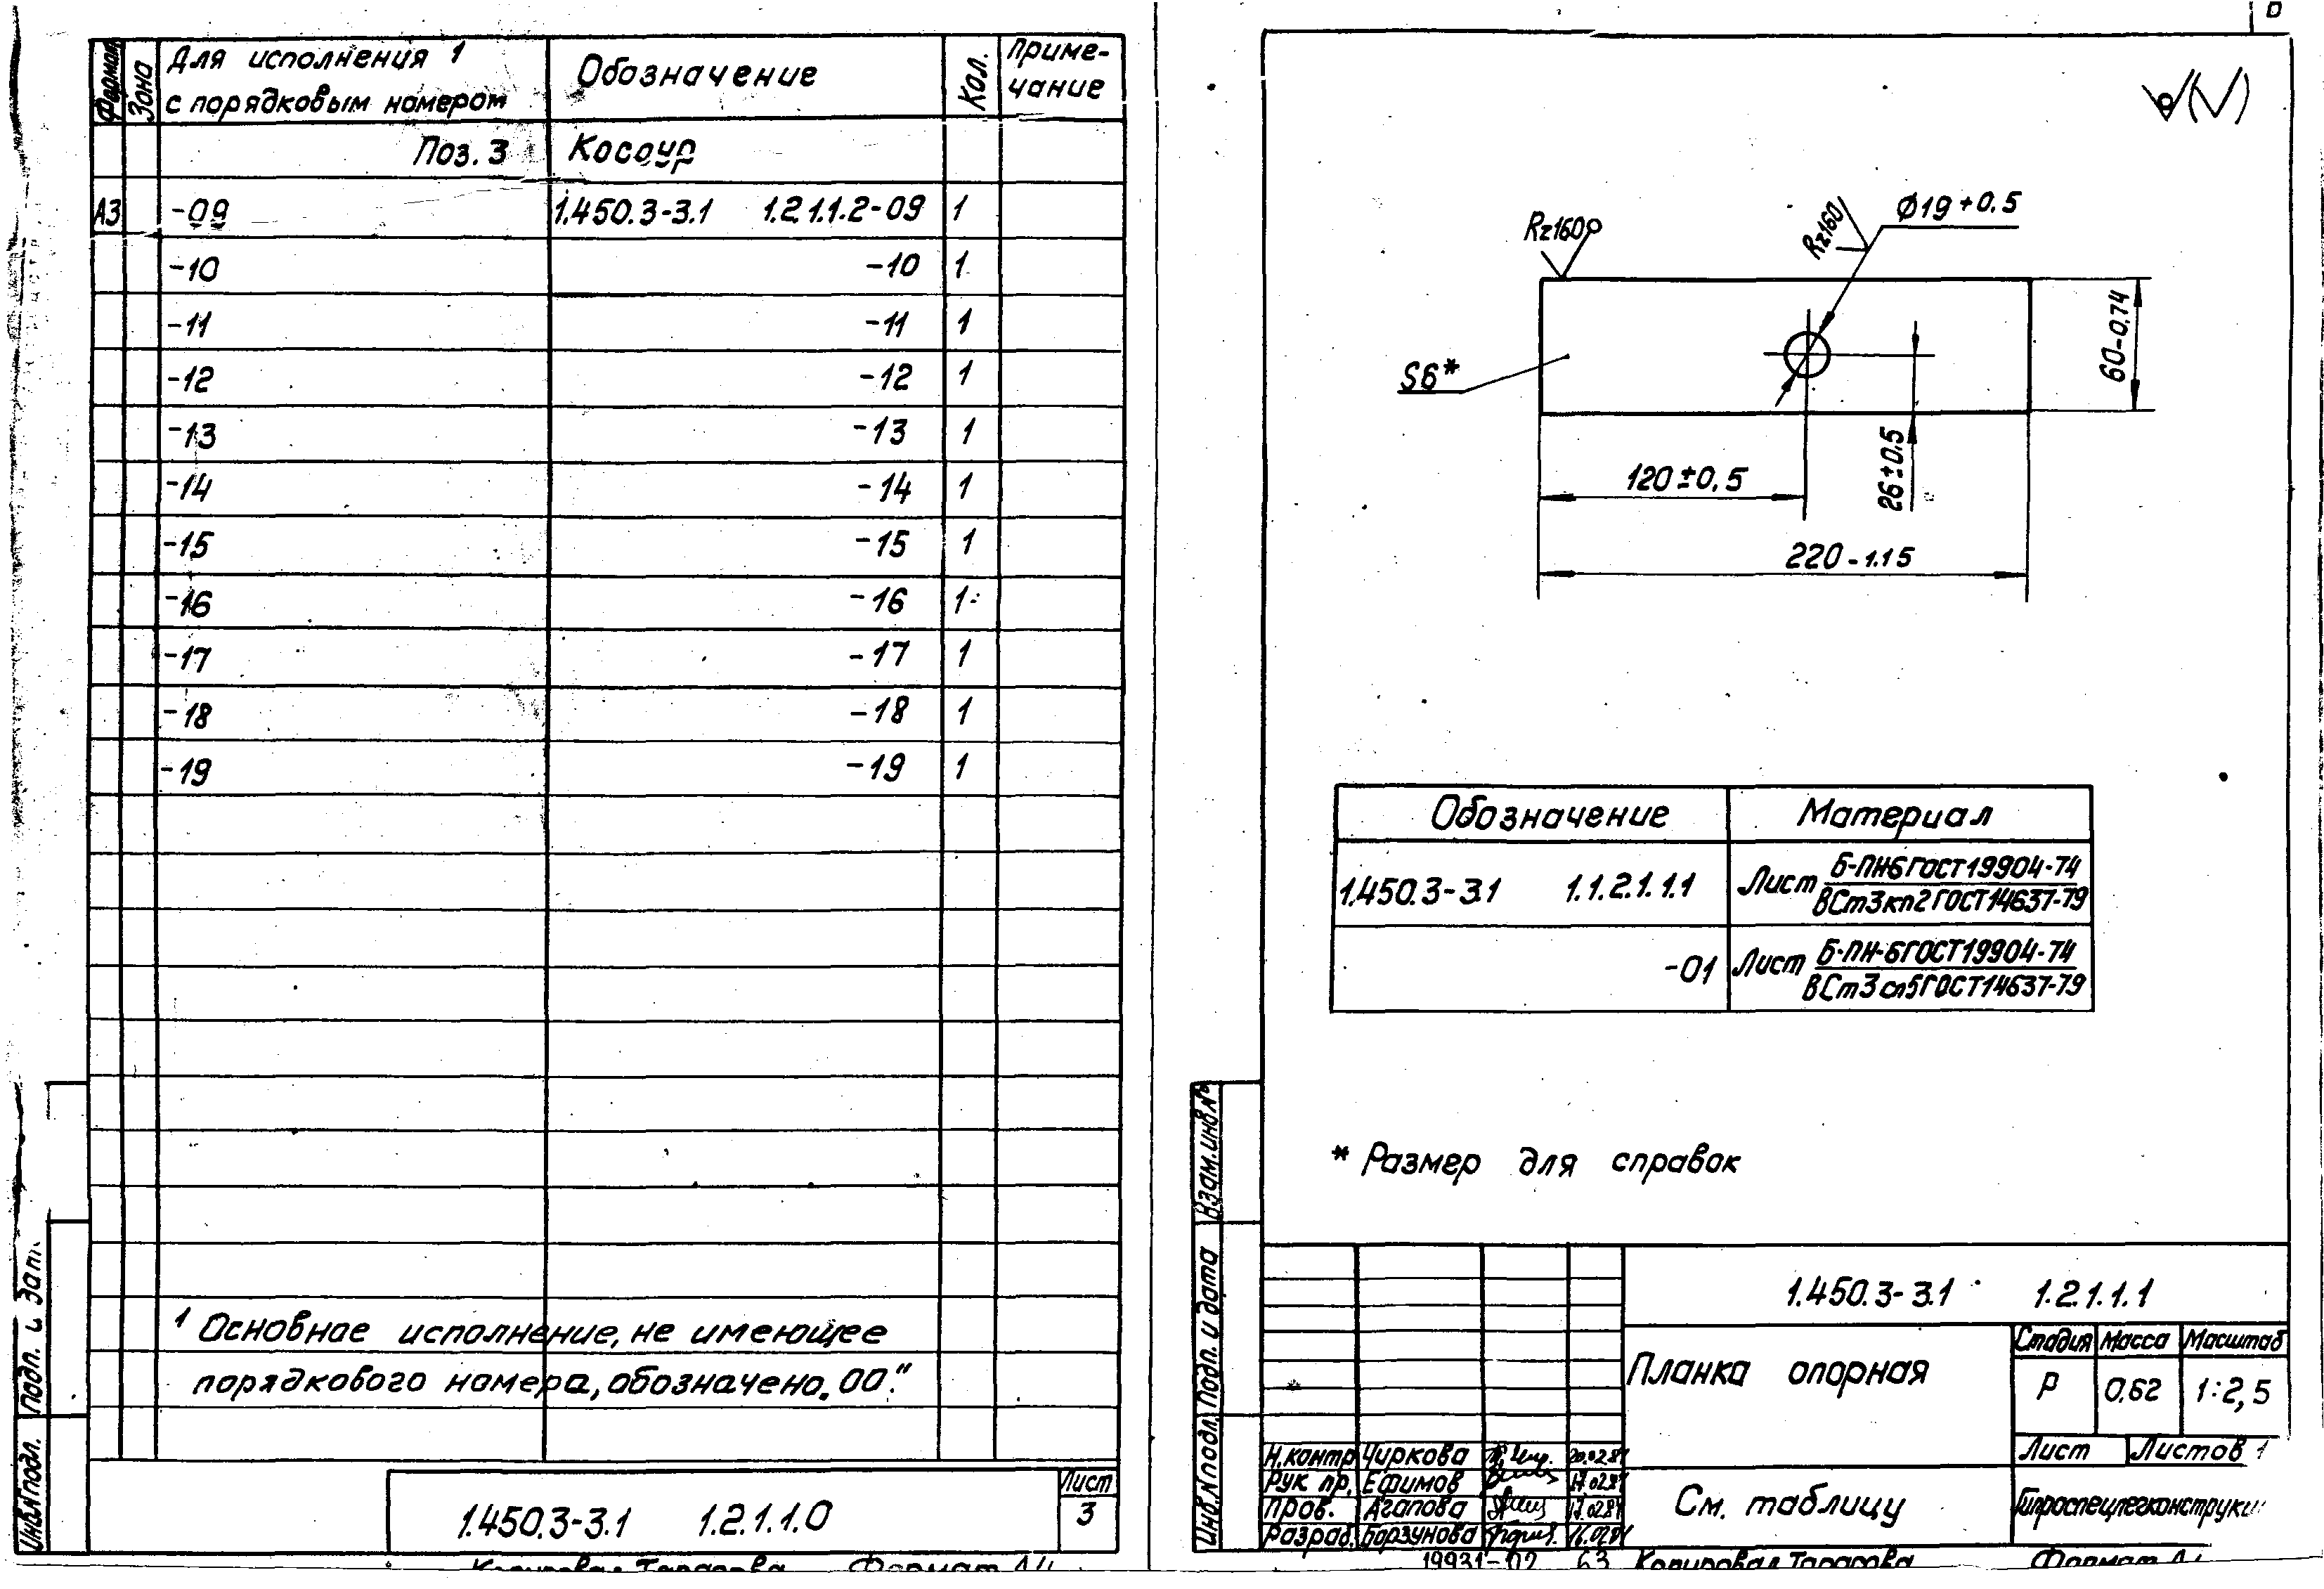 Формат
Зона
Для исполнения 1
с порядковым номером
Обозначение
Кол.
Приме-
чание
Поз. 3 Косоур
А3 -09 1.450.3-3.1 1.2.1.1.2-09 1
-10 -10 1
-11 -11 1
-12 -12 1
-13 -13 1
-14 -14 1
-15 -15 1
-16 -16 1
-17 -17 1
-18 -18 1
-19 -19 1
1 Основное исполнение, не имеющее
порядкового номера, обозначено „00."
Подп. и
Инв.№подл.
1.450.3-3.1 1.2.1.1.0
Лист
3
Копировал Тарасова Формат
Rz160
Rz160
Ø19+0.5
S6*
60-0,74
26±0.5
120±0,5
220-1.15
Обозначение Материал
1.450.3-3.1 1.1.2.1.1.1 Лист Б-ПН6ГОСТ19904-74
ВСт3кп2ГОСТ14637-79
-01 Лист Б-ПН-6ГОСТ19904-74
ВСт3сп5ГОСТ14637-79
* Размер для справок
Взам.инв.№
Подп. и дата
Инв.№подл.
1.450.3-3.1 1.2.1.1.1
Планка опорная
Стадия Масса Масштаб
Р 0.62 1:2,5
Лист Листов 1
Н.контр Чиркова 20.02.84
Рук пр. Ефимов 17.02.84
Пров. Агапова 17.02.84
Разраб. Борзунова 16.02.84
См. таблицу
Гипроспецлегконструкц
19931-02 63 Копировал Тарасова Формат